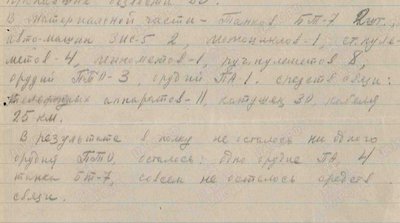 В материальной части - Танков БТ-7 2 шт.,
автомашин ЗИС-5 2, мотоциклов-1, ст.пуле-
метов-4, минометов-1, руч.пулеметов 8,
орудий ПТО-3, орудий ПА-1. средств связи:
телефонных аппаратов-11, катушек 30, кабеля
25 км.
В результате в полку не осталось ни одного
орудия ПТО, осталось: одно орудие ПА, 4
танка БТ-7, совсем не осталось средств
связи.